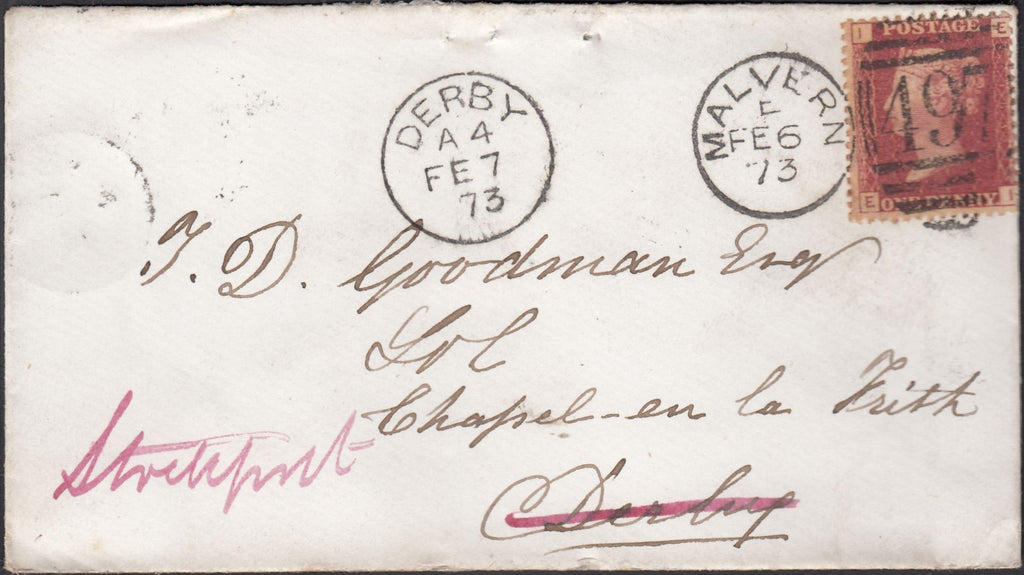 I POSTAGE E
497
E ONE PENNY I
MALVERN
F
FE 6
73
DERBY
A 4
FE 7
73
J. D. Goodman Esq
Sol
Chapel-en la Frith
Derby
Stockport